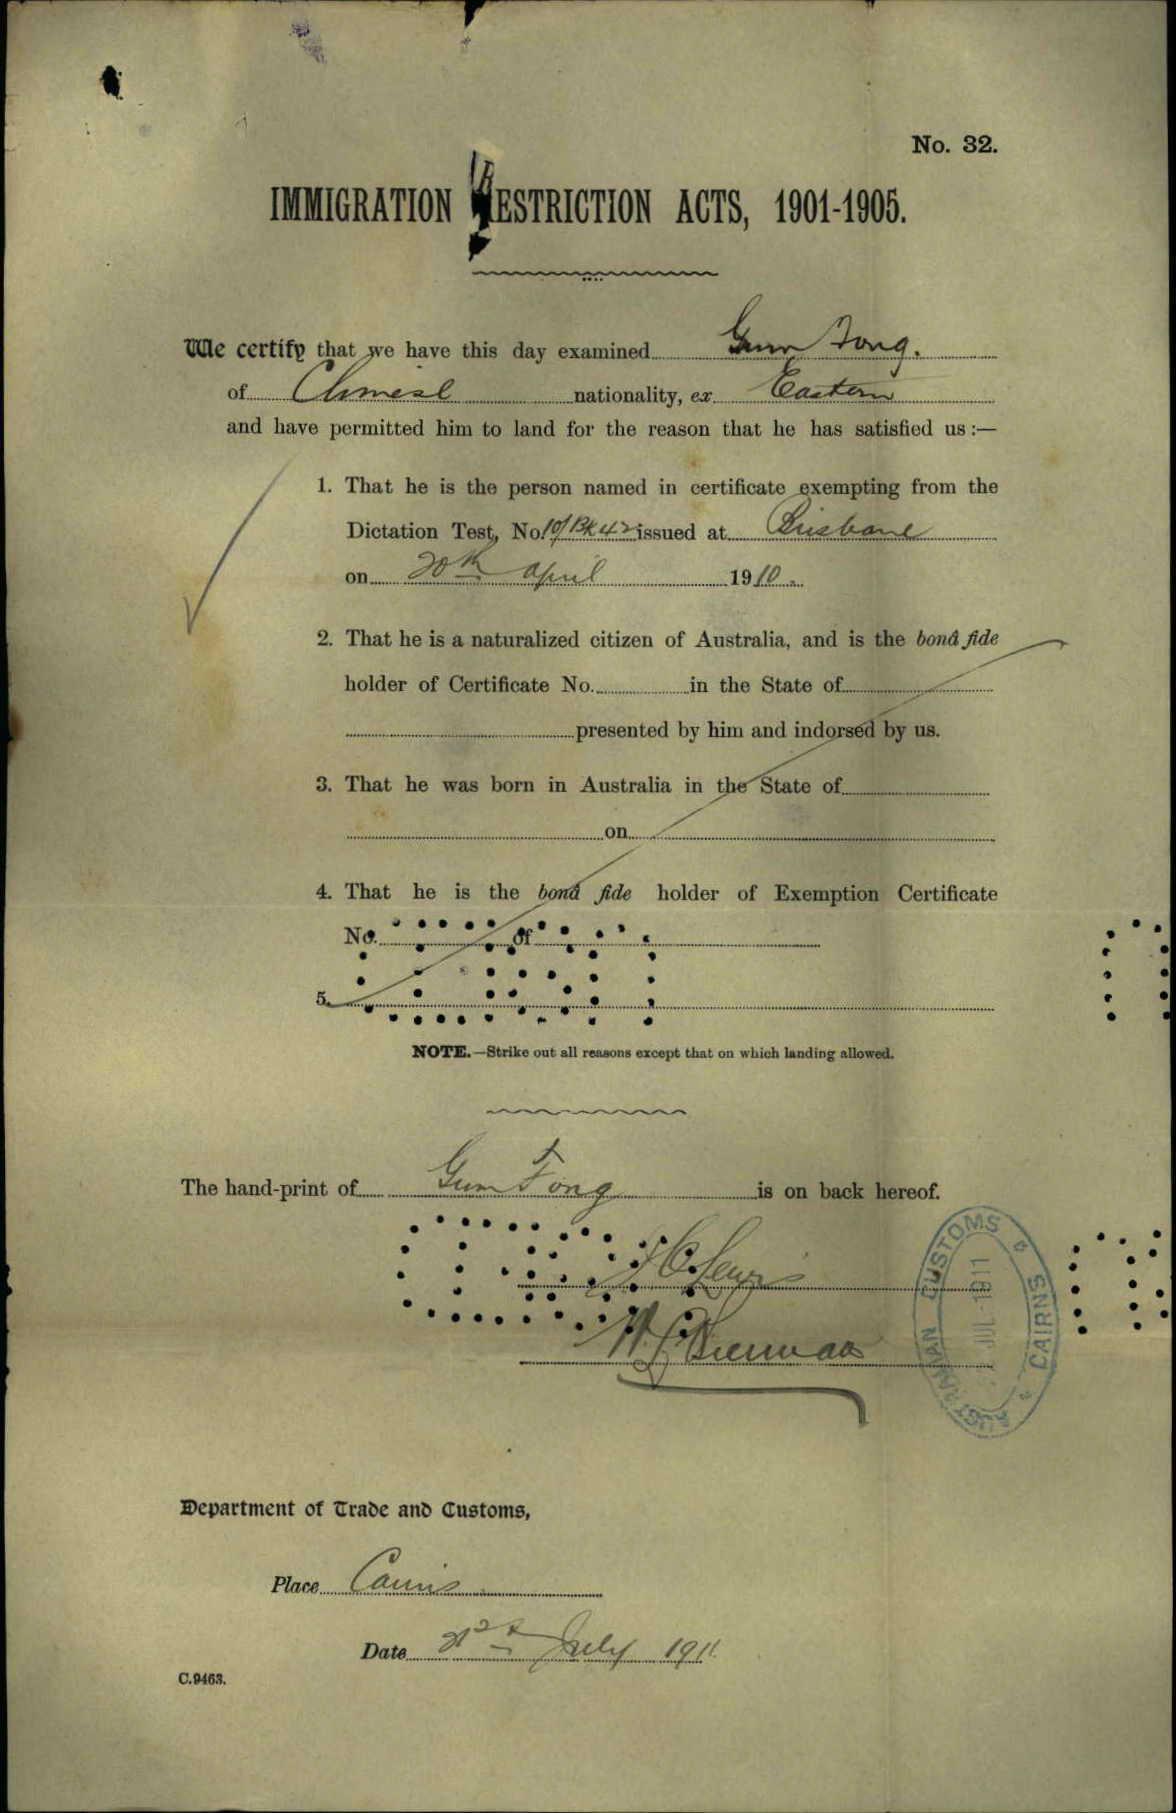 No. 32.
IMMIGRATION RESTRICTION ACTS, 1901-1905.
We certify that we have this day examined Gum Fong.
of Chinese nationality, ex Eastern
and have permitted him to land for the reason that he has satisfied us:—
1. That he is the person named in certificate exempting from the
Dictation Test, No. 10/Bk 42 issued at Brisbane
on 20th April 1910.
2. That he is a naturalized citizen of Australia, and is the bonâ fide
holder of Certificate No. in the State of
presented by him and indorsed by us.
3. That he was born in Australia in the State of
on
4. That he is the bonâ fide holder of Exemption Certificate
No. of
5.
NOTE.—Strike out all reasons except that on which landing allowed.
The hand-print of Gum Fong is on back hereof.
AUSTRALIAN CUSTOMS CAIRNS
JUL 1911
Department of Trade and Customs,
Place Cairns
Date July 1911
C.9463.